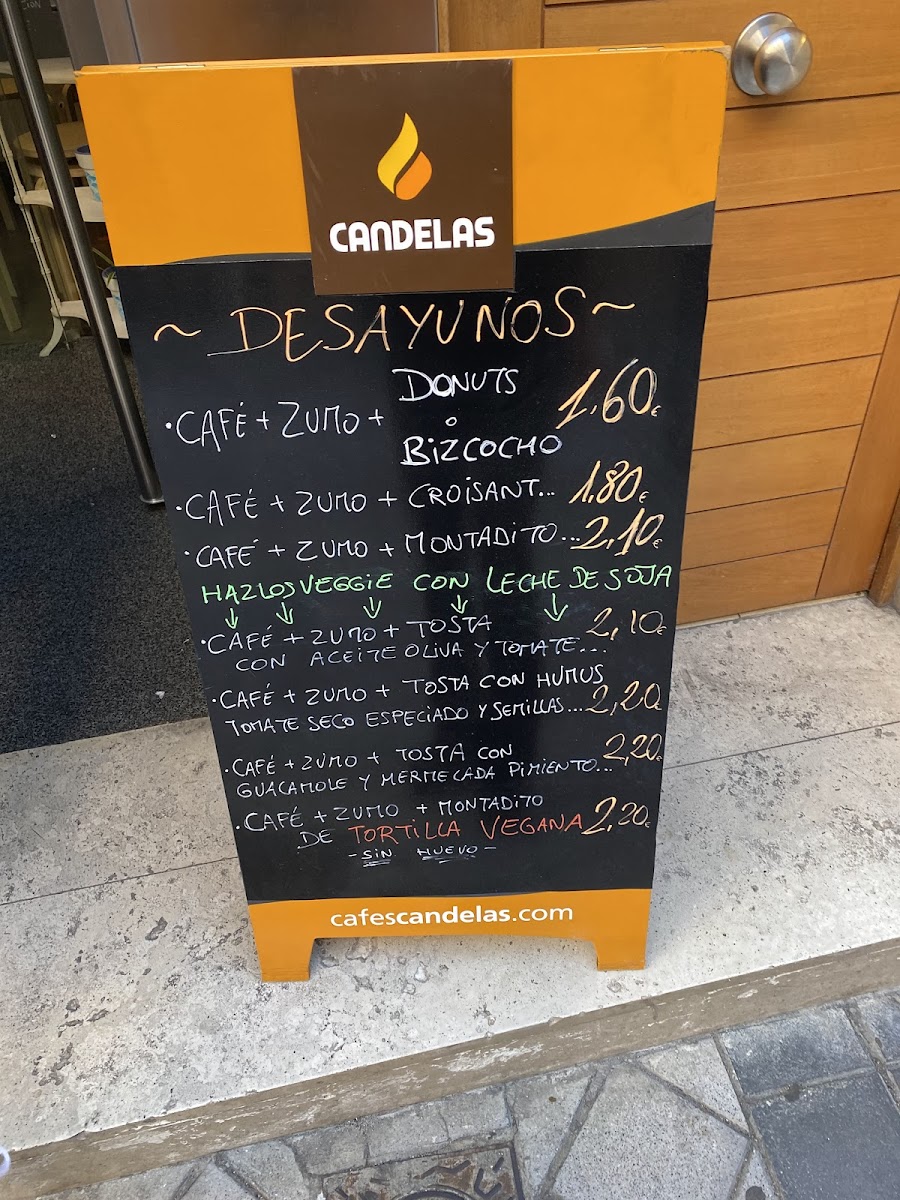 CANDELAS
~ DESAYUNOS ~
· CAFÉ + ZUMO + DONUTS o BIZCOCHO 1,60€
· CAFÉ + ZUMO + CROISANT... 1,80€
· CAFÉ + ZUMO + MONTADITO... 2,10€
HAZLOS VEGGIE CON LECHE DE SOJA
↓ ↓ ↓ ↓ ↓
· CAFÉ + ZUMO + TOSTA 2,10€
CON ACEITE OLIVA Y TOMATE...
· CAFÉ + ZUMO + TOSTA CON HUMUS
TOMATE SECO ESPECIADO Y SEMILLAS... 2,20
· CAFÉ + ZUMO + TOSTA CON 2,20€
GUACAMOLE Y MERMECADA PIMIENTO...
· CAFÉ + ZUMO + MONTADITO
DE TORTILLA VEGANA 2,20€
- SIN HUEVO -
cafescandelas.com